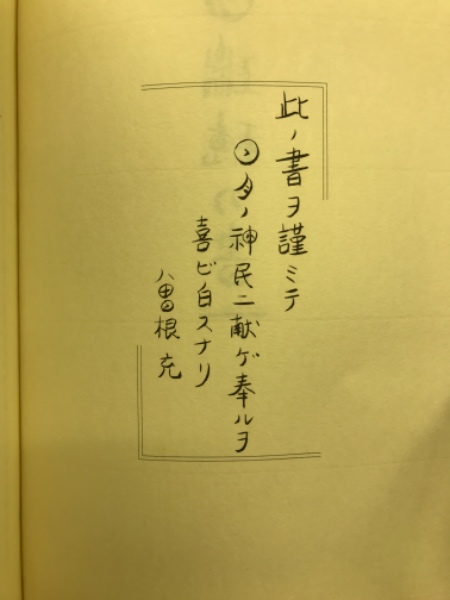 此ノ書ヲ謹ミテ
⦿月ノ神民ニ献ゲ奉ルヲ
喜ビ白スナリ
曽根充